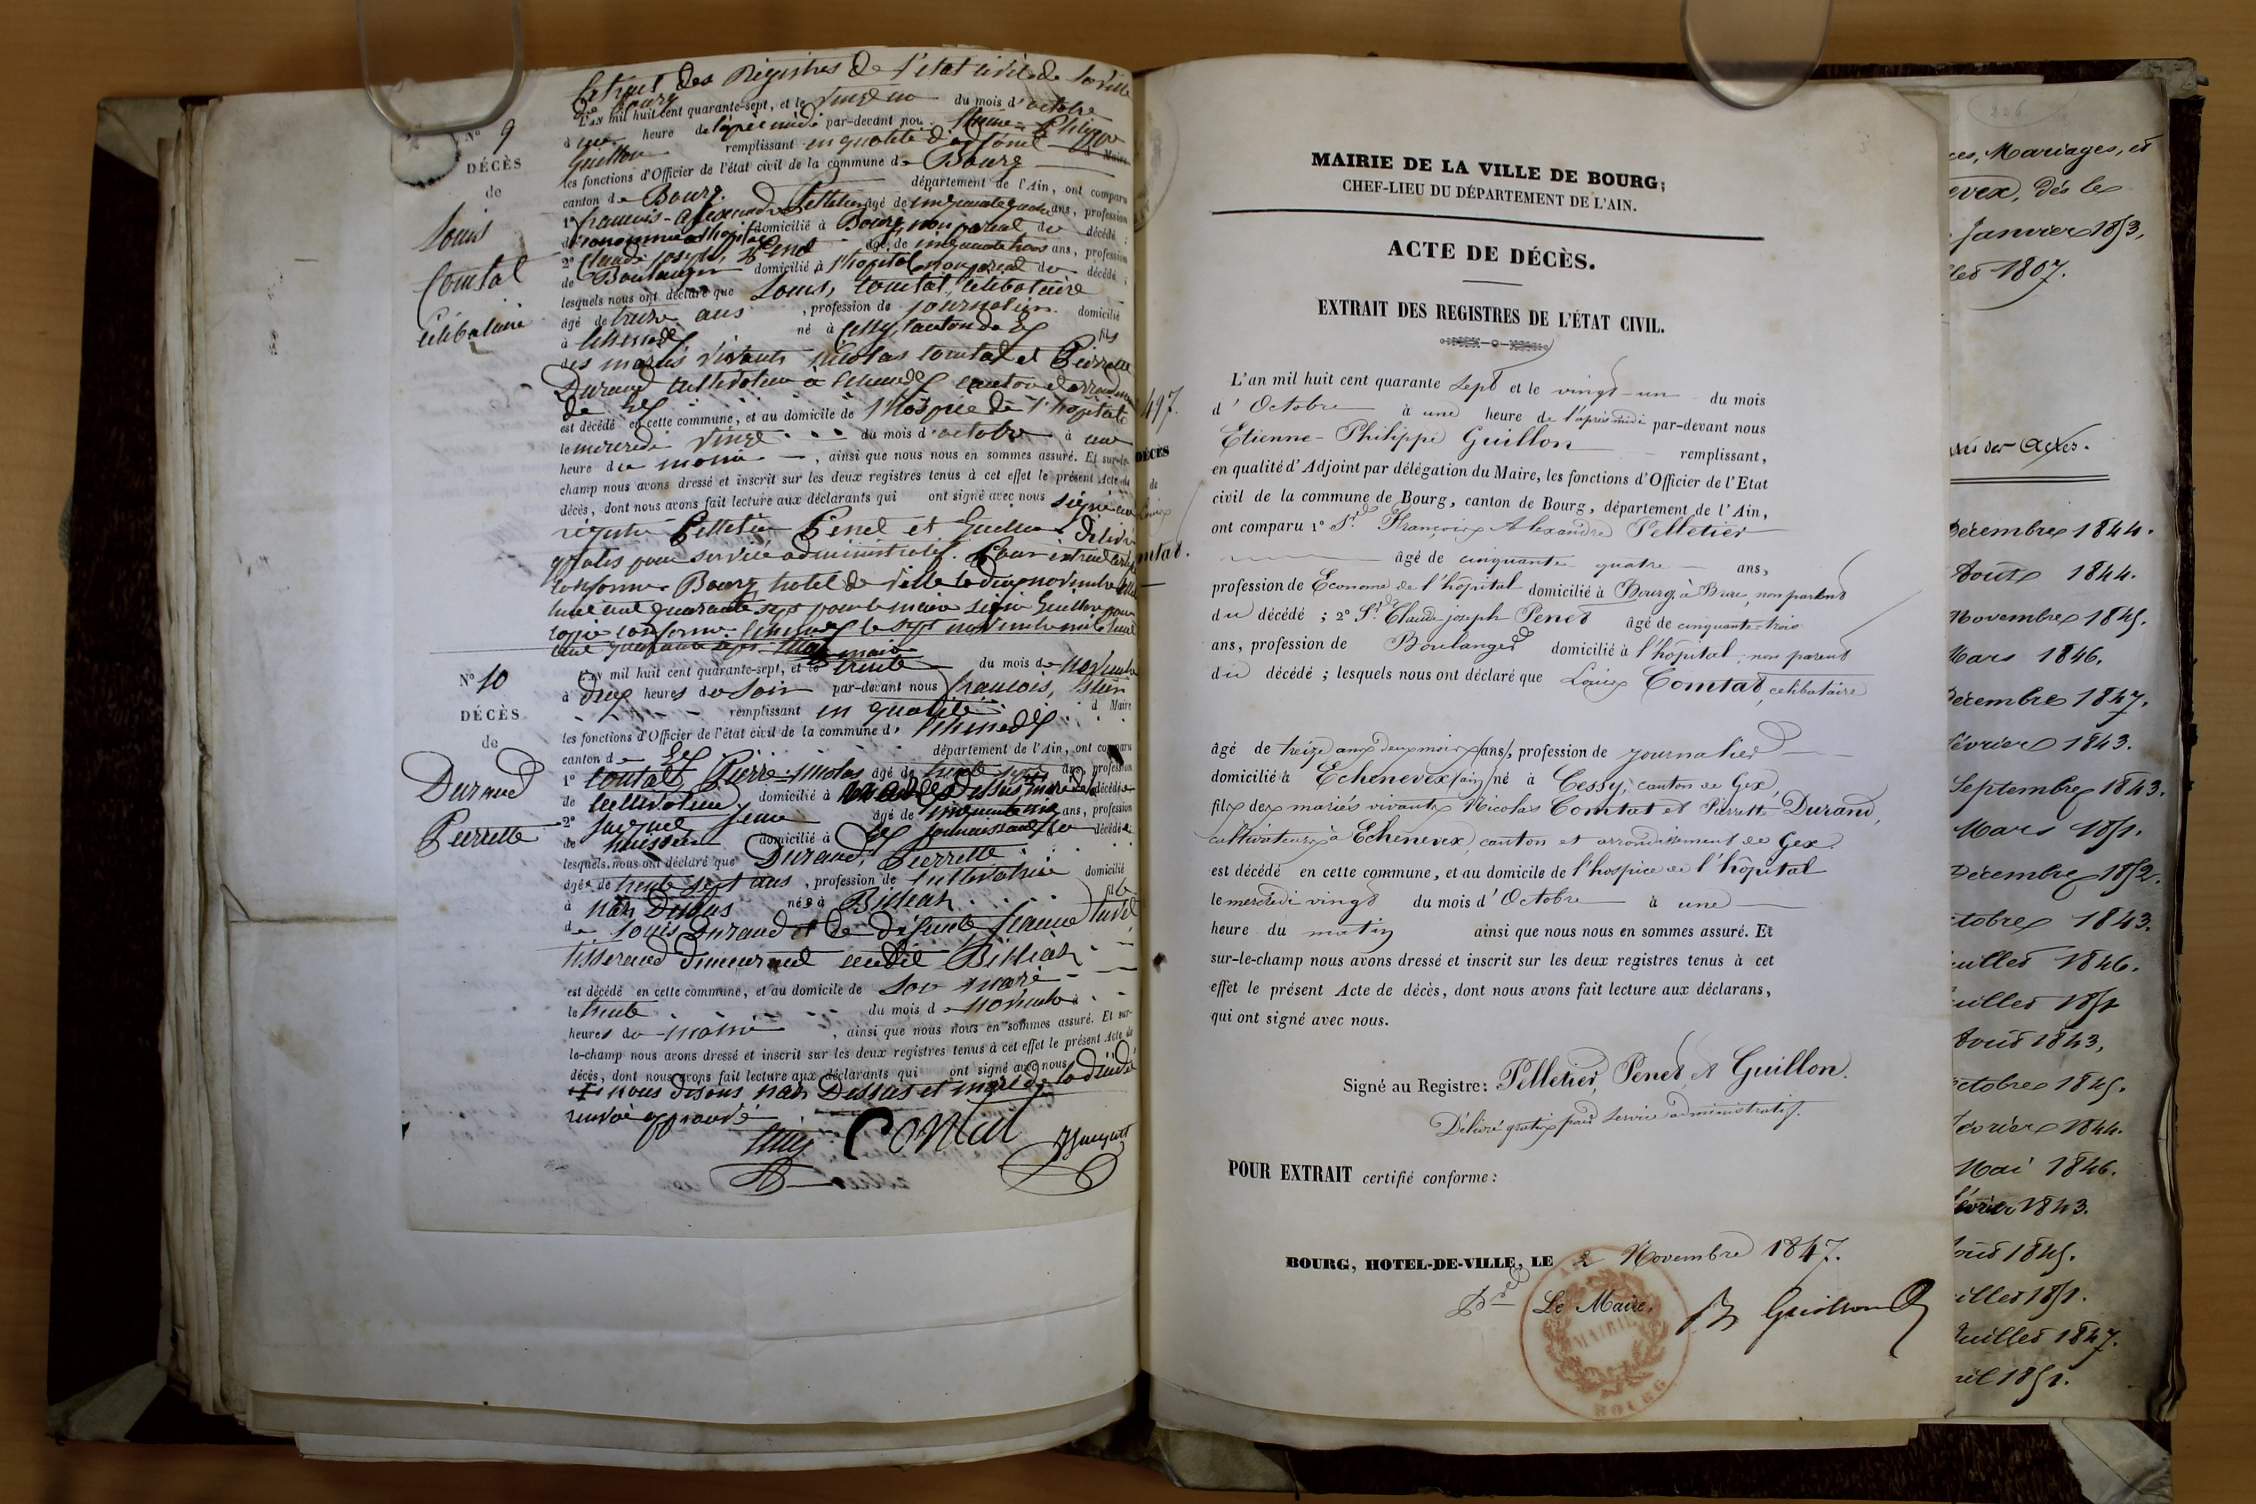 Extrait des Registres de l'état civil de la ville
de Bourg
N° 9
DÉCÈS
de
Louis
Comtat
célibataire
L'an mil huit cent quarante-sept, et le vingt un du mois d'octobre
à une heure de l'après midi par-devant nous Etienne-Philippe
Guillon remplissant en qualité d'adjoint d Maire
les fonctions d'Officier de l'état civil de la commune de Bourg
canton de Bourg département de l'Ain, ont comparu
1° françois-alexandre Pelletier âgé de cinquante quatre ans, profession
d'économe de l'hopital domicilié à Bourg, non parent du décédé ;
2° Claude joseph, Penet âgé de cinquante trois ans, profession
de Boulanger domicilié à l'hopital non parent du décédé ;
lesquels nous ont déclaré que Louis, Comtat, célibataire
âgé de treize ans , profession de journalier domicilié
à Echenevex né à Cessy, canton de Gex fils
des mariés vivants Nicolas Comtat et Pierrette
Durand cultivateurs à Echenevex canton et arrondissement
de Gex
est décédé en cette commune, et au domicile de l'hospice de l'hopital
le mercredi vingt du mois d'octobre à une
heure du matin , ainsi que nous nous en sommes assuré. Et sur-le-
champ nous avons dressé et inscrit sur les deux registres tenus à cet effet le présent Acte de
décès, dont nous avons fait lecture aux déclarants qui ont signé avec nous signé au
registre Pelletier Penet et Guillon Délivré
gratis pour service administratif. Pour extrait certifié
conforme. Bourg hotel de ville le deux novembre mil
huit cent quarante sept pour le maire signé Guillon pour
copie conforme. Echenevex le sept novembre mil huit
cent quarante sept maire
N° 10
DÉCÈS
de
Durand
Pierrette
L'an mil huit cent quarante-sept, et le trente du mois de Novembre
à deux heures du soir par-devant nous françois,
remplissant en qualité d Maire
les fonctions d'Officier de l'état civil de la commune d' Echenevex
canton de Gex département de l'Ain, ont comparu
1° Comtat Pierre-Nicolas âgé de trente ans, profession
de cultivateur domicilié à décédée
2° âgé de cinquante ans, profession
de huissier domicilié à Gex décédée
lesquels nous ont déclaré que Durand, Pierrette
âgée de trente sept ans , profession de cultivatrice domicilié
à Naz Dessus née à fille
de Louis Durand et de défunte
tisserand demeurant audit
est décédé en cette commune, et au domicile de son mari
le trente du mois de novembre à
heures du matin , ainsi que nous nous en sommes assuré. Et sur-
le-champ nous avons dressé et inscrit sur les deux registres tenus à cet effet le présent Acte de
décès, dont nous avons fait lecture aux déclarants qui ont signé avec nous
nous disons naz Dessus et mari de la décédée
renvoi approuvé
Contat
497.
DÉCÈS
de
Louis
Comtat.
MAIRIE DE LA VILLE DE BOURG;
CHEF-LIEU DU DÉPARTEMENT DE L'AIN.
ACTE DE DÉCÈS.
EXTRAIT DES REGISTRES DE L'ÉTAT CIVIL.
L'an mil huit cent quarante sept et le vingt-un du mois
d' Octobre à une heure de l'après midi par-devant nous
Etienne-Philippe Guillon remplissant,
en qualité d'Adjoint par délégation du Maire, les fonctions d'Officier de l'Etat
civil de la commune de Bourg, canton de Bourg, département de l'Ain,
ont comparu 1° Sr. François Alexandre Pelletier
âgé de cinquante quatre ans,
profession de Econome de l'hôpital domicilié à Bourg, non parent
du décédé ; 2° Sr. Claude joseph Penet âgé de cinquante-trois
ans, profession de Boulanger domicilié à l'hôpital, non parent
du décédé ; lesquels nous ont déclaré que Louis Comtat, célibataire
âgé de treize ans deux mois (ans), profession de journalier
domicilié à Echenevex (ain) né à Cessy, canton de Gex,
fils des mariés vivants Nicolas Comtat et Pierrette Durand,
cultivateurs à Echenevex, canton et arrondissement de Gex.
est décédé en cette commune, et au domicile de l'hospice de l'hôpital
le mercredi vingt du mois d'Octobre à une
heure du matin ainsi que nous nous en sommes assuré. Et
sur-le-champ nous avons dressé et inscrit sur les deux registres tenus à cet
effet le présent Acte de décès, dont nous avons fait lecture aux déclarans,
qui ont signé avec nous.
Signé au Registre: Pelletier, Penet, & Guillon.
Délivré gratis pour service administratif.
POUR EXTRAIT certifié conforme :
BOURG, HOTEL-DE-VILLE, LE 2 Novembre 1847.
Le Maire,
Guillon
AIN
MAIRIE
BOURG
226
ces, Mariages, et
evex, dès le
Janvier 1853,
llet 1807.
des Actes.
Décembre 1844.
Août 1844.
Novembre 1845.
Mars 1846.
Décembre 1847.
février 1843.
Septembre 1843.
Mars 1851.
Décembre 1852.
ctobre 1843.
uillet 1846.
uillet 1851
Août 1843,
octobre 1845.
février 1844.
Mai 1846.
février 1843.
oût 1845.
uillet 1851.
Juillet 1847.
ril 1851.